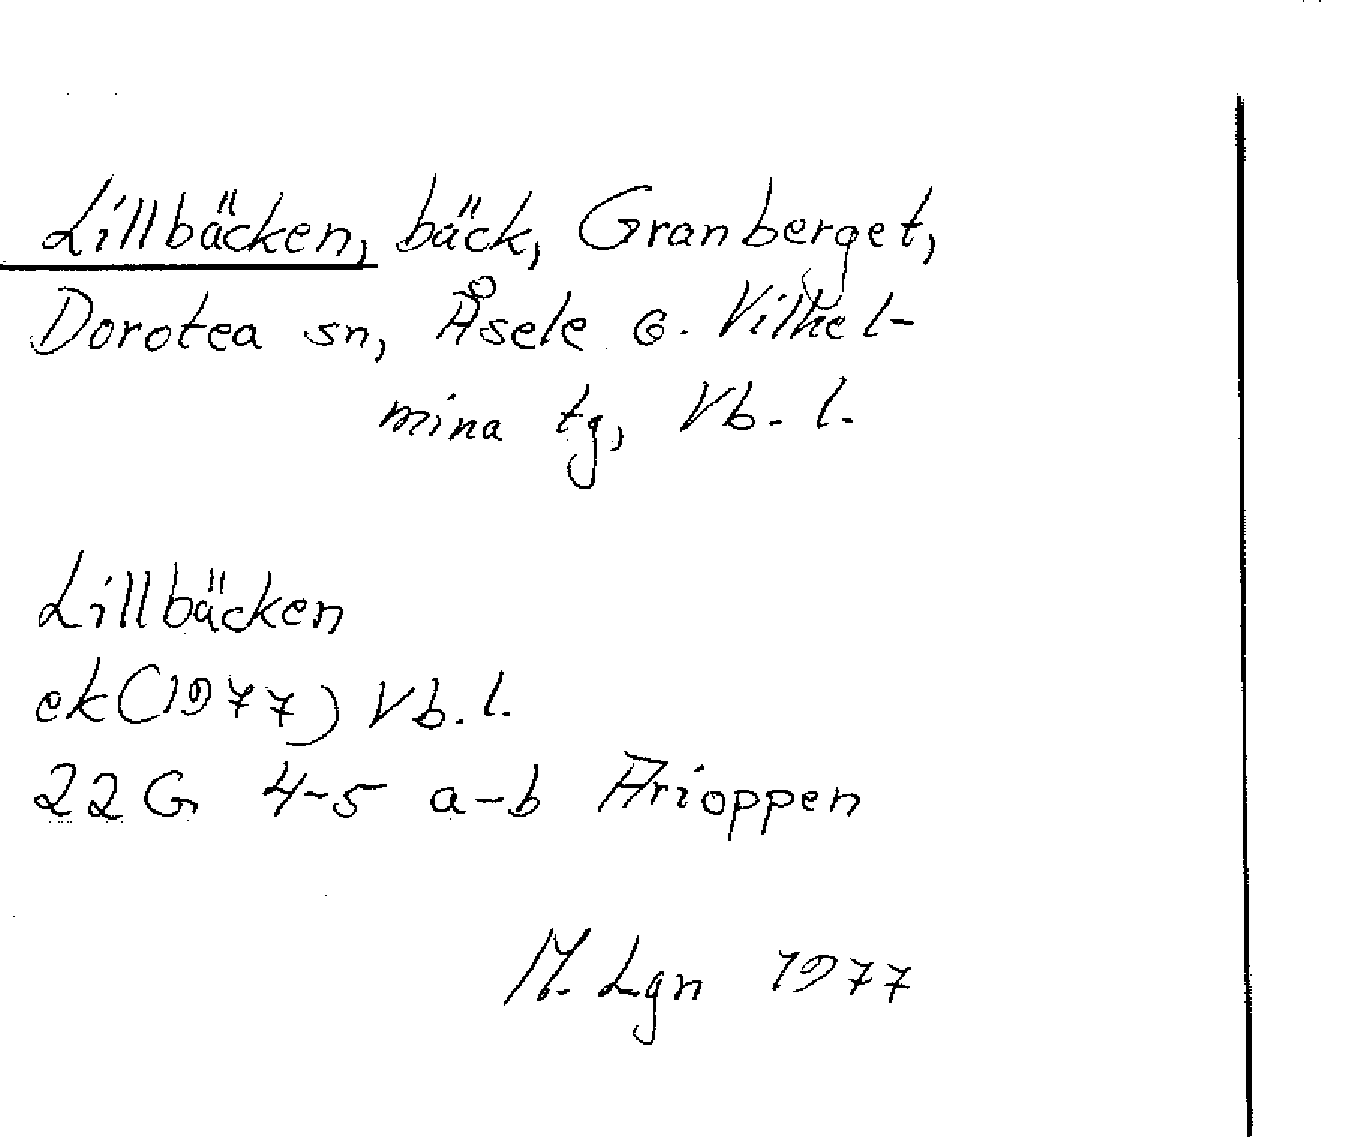 Lillbäcken, bäck, Granberget,
Dorotea sn, Åsele o. Vilhel-
mina tg, Vb. l.
Lillbäcken
ek (1977) Vb. l.
22 G 4-5 a-b Arioppen
M. Lgn 1977